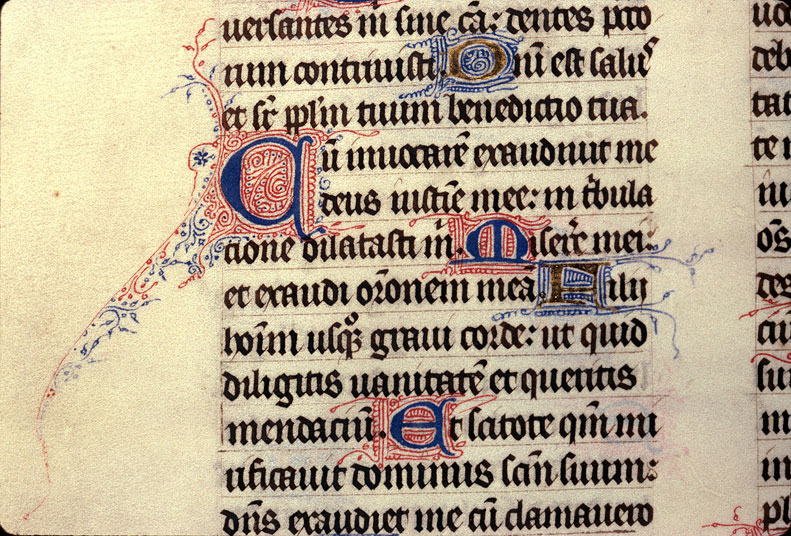 uersantes m̄ sine cā: dentes pctō
rum contriuisti. Dn̄i est salus
et sr̄ pplm̄ tuum benedictio tua.
Cū inuocarē exaudiuit me
deus iusticie mee: in tribula
cione dilatasti m̄. Miserē mei:
et exaudi orōnem meā. Filii
hoīm usq̄ graui corde: ut quid
diligitis uanitatē et queritis
mendaciū. Et scitote qm̄ mi
rificauit dominus scm̄ suum:
dn̄s exaudiet me cū clamauero